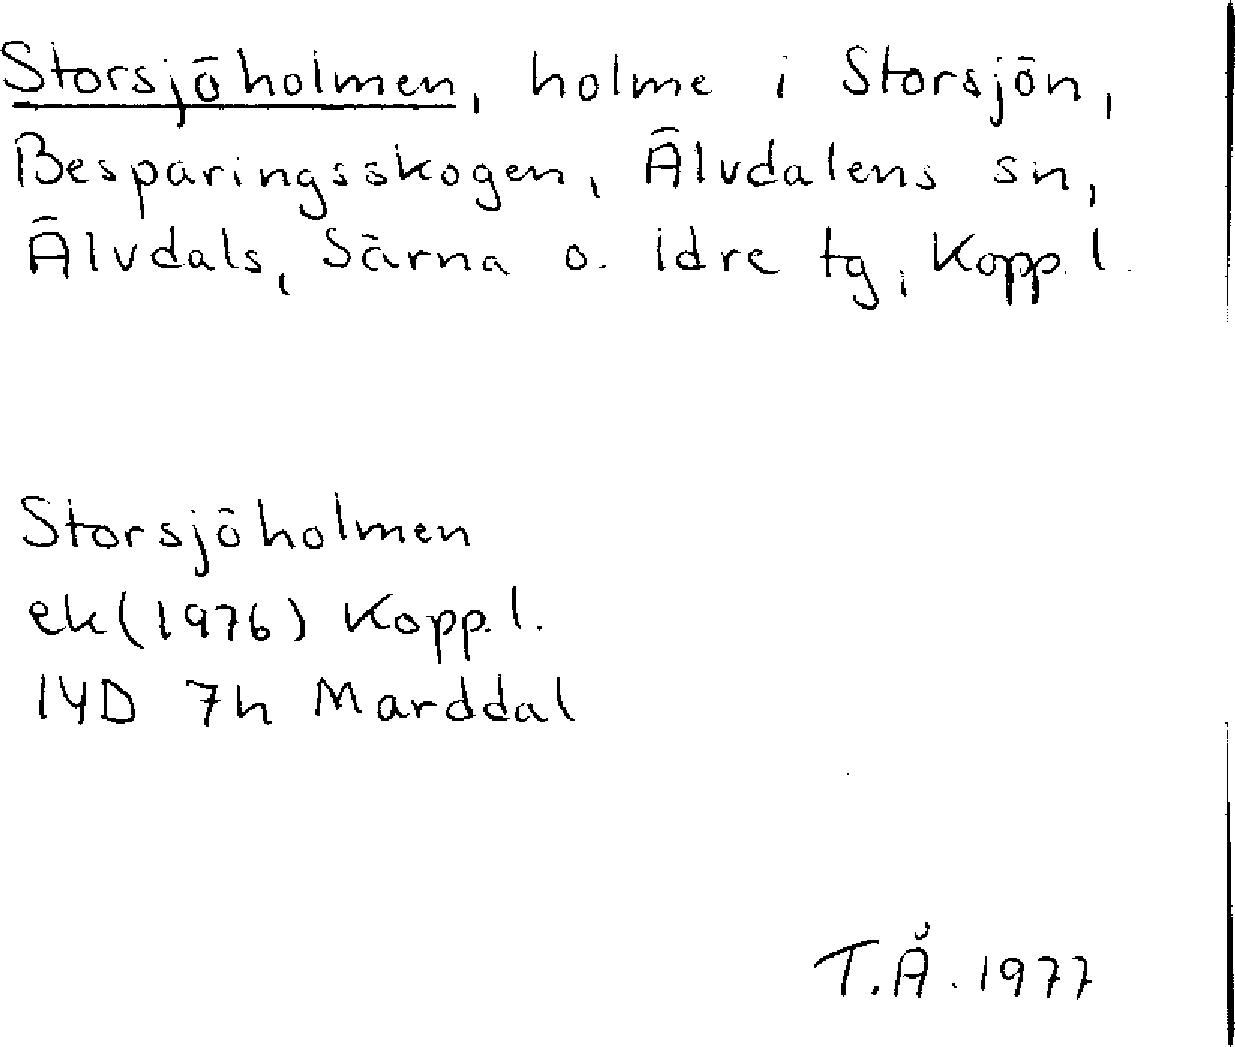 Storsjöholmen, holme i Storsjön,
Besparingsskogen, Älvdalens sn,
Älvdals, Särna o. Idre tg, Kopp. l.
Storsjöholmen
ek (1976) Kopp. l.
14D 7h Marddal
T.Å. 1977